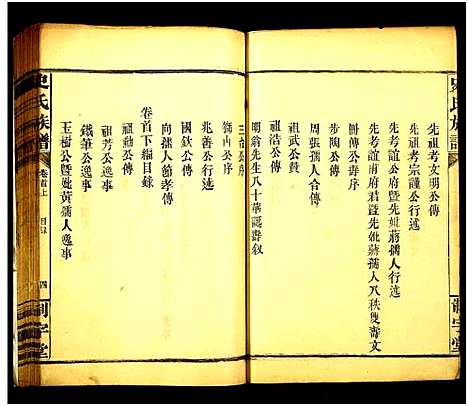 史氏族譜
先祖考文明公傳
先祖考宗謹公行述
先考誼公府君暨先妣蔣孺人行述
先考誼甫府君暨先妣蔣孺人八秩雙壽文
開傳公壽序
步陶公傳
周張孺人合傳
祖武公贊
祖浩公傳
明翁先生八十華誕壽敘
三台公序
公序
兆善公行述
國欽公傳
向孺人節孝傳
卷首下編目錄
祖勳公傳
祖芳公逸事
鐵筆公逸事
玉樹公暨妣黃孺人逸事
史氏族譜
卷首上
目錄
四
制字堂